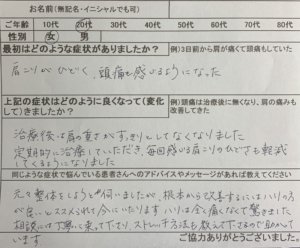 お名前(無記名・イニシャルでも可)
ご年齢 10代 20代 30代 40代 50代 60代 70代 80代
性別 女 男
最初はどのような症状がありましたか? 例)3日前から肩が痛くて頭痛もしていた
肩こりがひどく、頭痛も感じるようになった
上記の症状はどのように良くなって(変化して)きましたか? 例)頭痛は治療後に無くなり、肩の痛みも改善してきた
治療後は肩の重さがすっきりとしてなくなりました
定期的に治療していただき、毎回感じる肩こりのひどさも軽減
してくるようになりました
同じような症状で悩んでいる患者さんへのアドバイスやメッセージがあれば教えてください
元々整体をしようと伺いましたが、根本から改善するにはハリの方
が良いとススメられて今にいたります ハリは全く痛くなくて驚きました
相談には丁寧に乗って下さり、ストレッチ方法も教えて下さるので助かって
います
ご協力ありがとうございました。